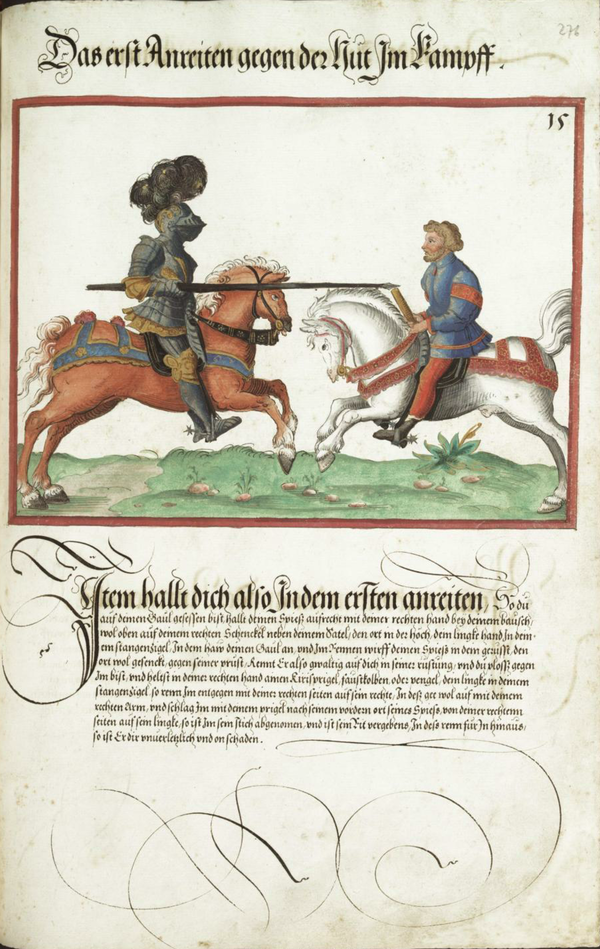 276
Das erst Anreiten gegen der Hut Im Kampff.
15
Item hallt dich also In dem ersten anreiten, So du
auf deinen Gaul gesessen bist, hallt deinen Spieß aufrecht mit deiner rechten hand bey deinem bausch,
wol oben auf deinem rechten Schenckel neben deinem Satel, den ort in der hoch, dein lingke hand In dem
stangenzigel, In dem haw deinen Gaul an, vnd Im Rennen wirff deinen Spieß in dem gerüst, den
ort wol gesenckt, gegen seiner prüst, Kemt Er also gwaltig auf dich in seiner rüstung, vnd du plosß gegen
Im bist, vnd helst in deiner rechten hand ainen prigel, faustkolben, oder vengel, dein lingke in deinem
stangenzigel, so renn Im entgegen mit deiner rechten seiten auf sein rechte, In deß get wol auf mit deinem
rechten Arm, vnd schlag Im mit deinem prigel nach seinem vordern ort seines Spieß, von deiner rechten
seiten auf sein lingke, so ist Im sein stich abgenomen, vnd ist sein Rit vergebens, In deß renn für In hinaus,
so ist Er dir vnuerletzlich vnd on schaden.